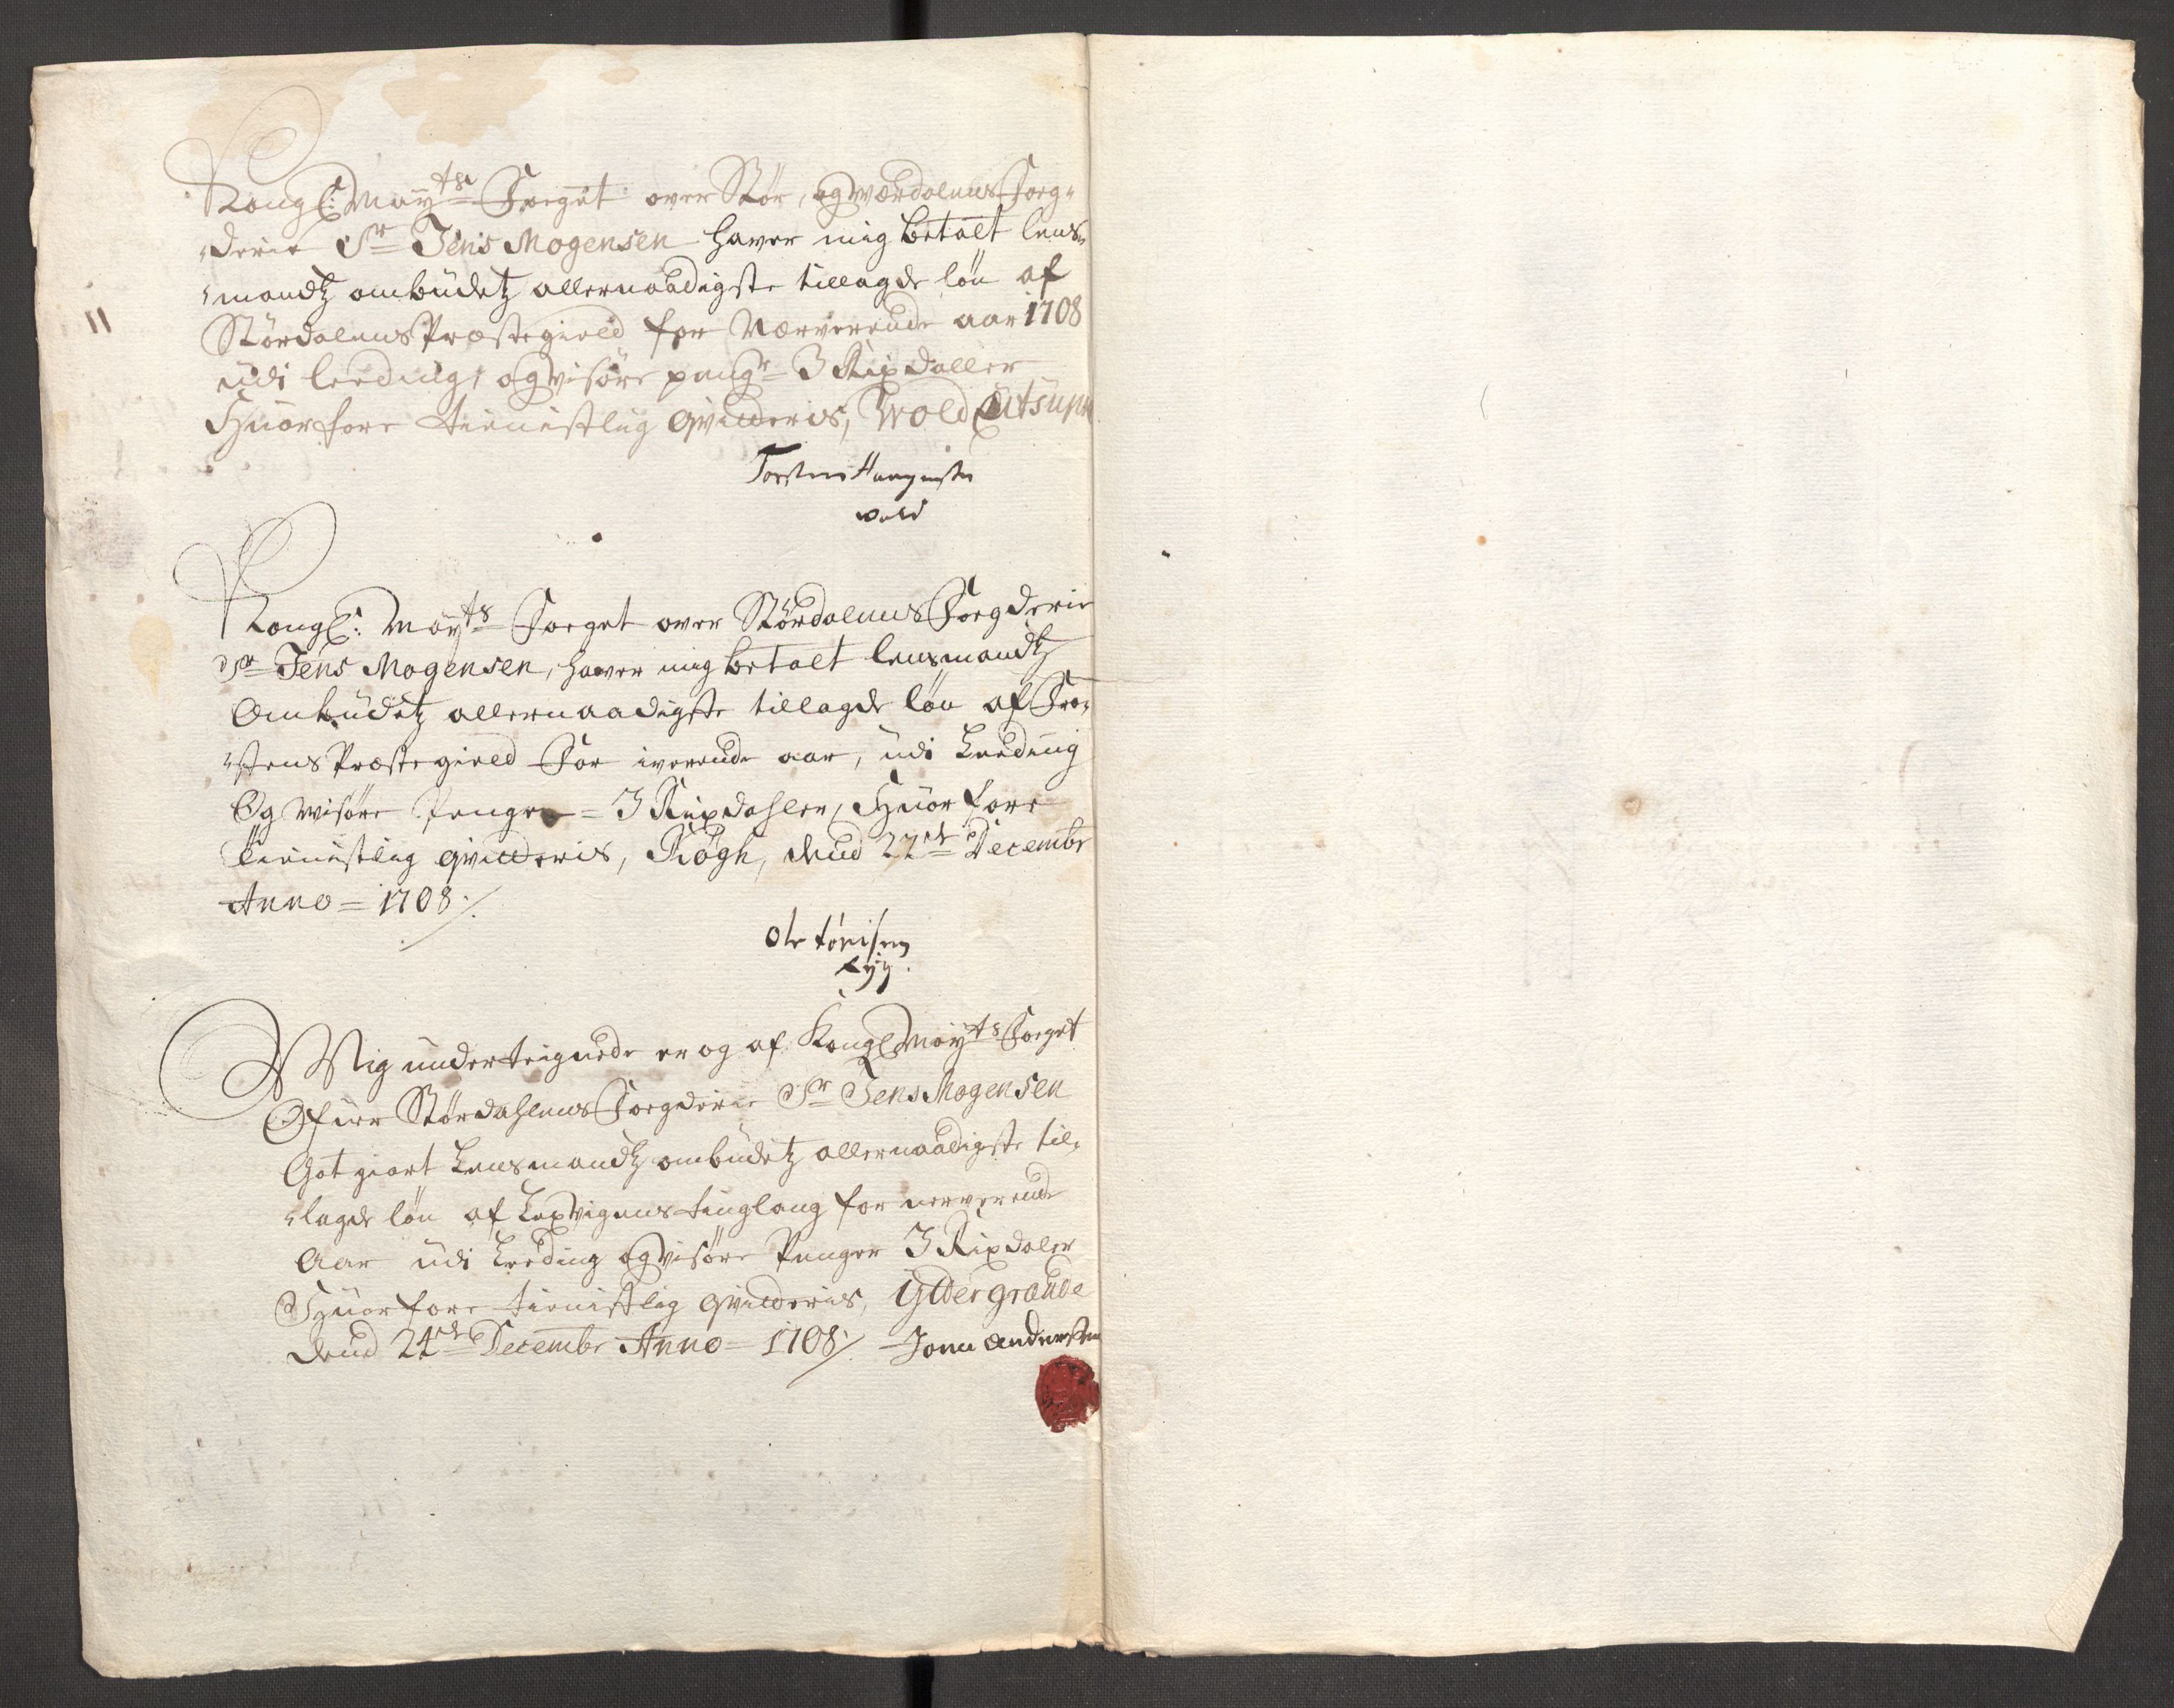 Kongl: Maÿts Foegut over Stör, og værdalens Foeg-
derie Sr Jens Mogensen haver mig betalt lens-
mandtz ombudetz allernaadigste tillagde lön af
Stördalens Præstegield for Nærverende aar 1708
udi leeding, og visöre peng 3 Rixdaller
Huorfore tienistlig qvitteris, Wold ut supr
Torsten
wold
Kongl: Maÿts Foeget over Stördalens Foegderie
Sr Jens Mogensen, haver mig betalt lensmandtz
Ombudetz allernaadigste tillagde lön af Fro-
stens Præstegield For iverende aar, udi Leeding
Og visöre Penger = 3 Rixdahler, Huorfore
tienistlig qvitteris, Röghe, dend 22de Decembr
Anno = 1708 ./.
Ole törisen
Mig underteignede er og af Kongl Maÿts Foegut
Ofuer Stördahlens Foegderie Sr Jens Mogensen
Got giort Lensmandtz ombudetz allernaadigste til-
lagde lön af Lexvigens tinglaug for nerverende
Aar udi Leeding og visöre Penger 3 Rixdaler
Huorfore tienistlig qvitteris, Ÿttergrande
dend 24de Decembr Anno = 1708 ./. Jonn Andersen